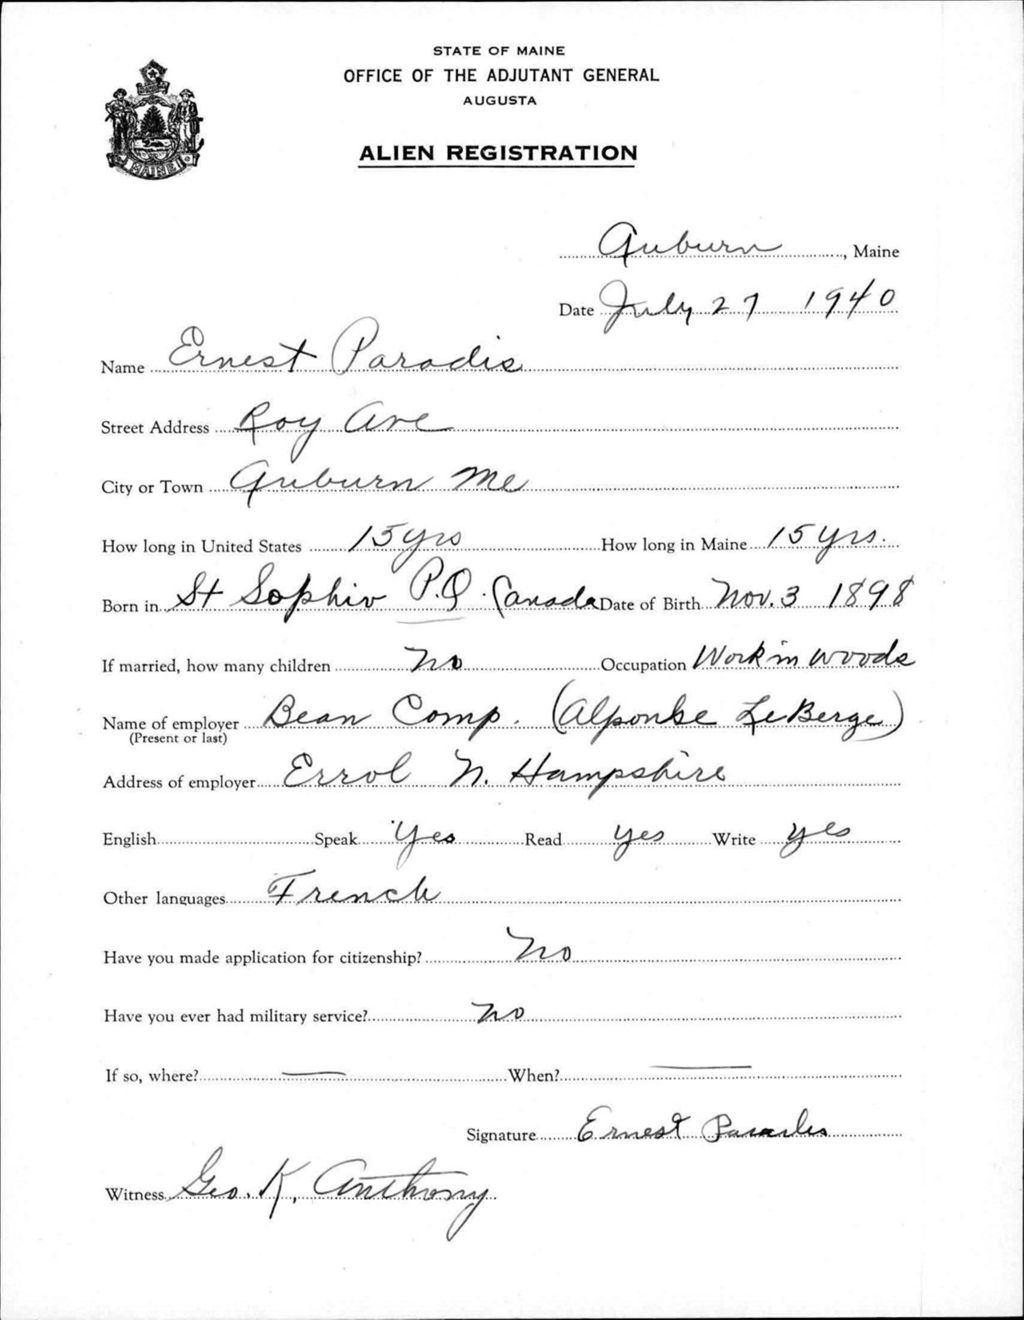 STATE OF MAINE
OFFICE OF THE ADJUTANT GENERAL
AUGUSTA
ALIEN REGISTRATION
MAINE
Auburn, Maine
Date July 27 1940
Name Ernest Paradis
Street Address Roy Ave
City or Town Auburn Me
How long in United States 15 yrs How long in Maine 15 yrs.
Born in St Sophie P.Q. Canada Date of Birth Nov. 3 1898
If married, how many children No Occupation Work in woods
Name of employer Bean Comp. (Alponse LeBerge)
(Present or last)
Address of employer Errol N. Hampshire
English Speak Yes Read yes Write yes
Other languages French
Have you made application for citizenship? No
Have you ever had military service? no
If so, where? — When? —
Signature Ernest Paradis
Witness Geo. K. Anthony